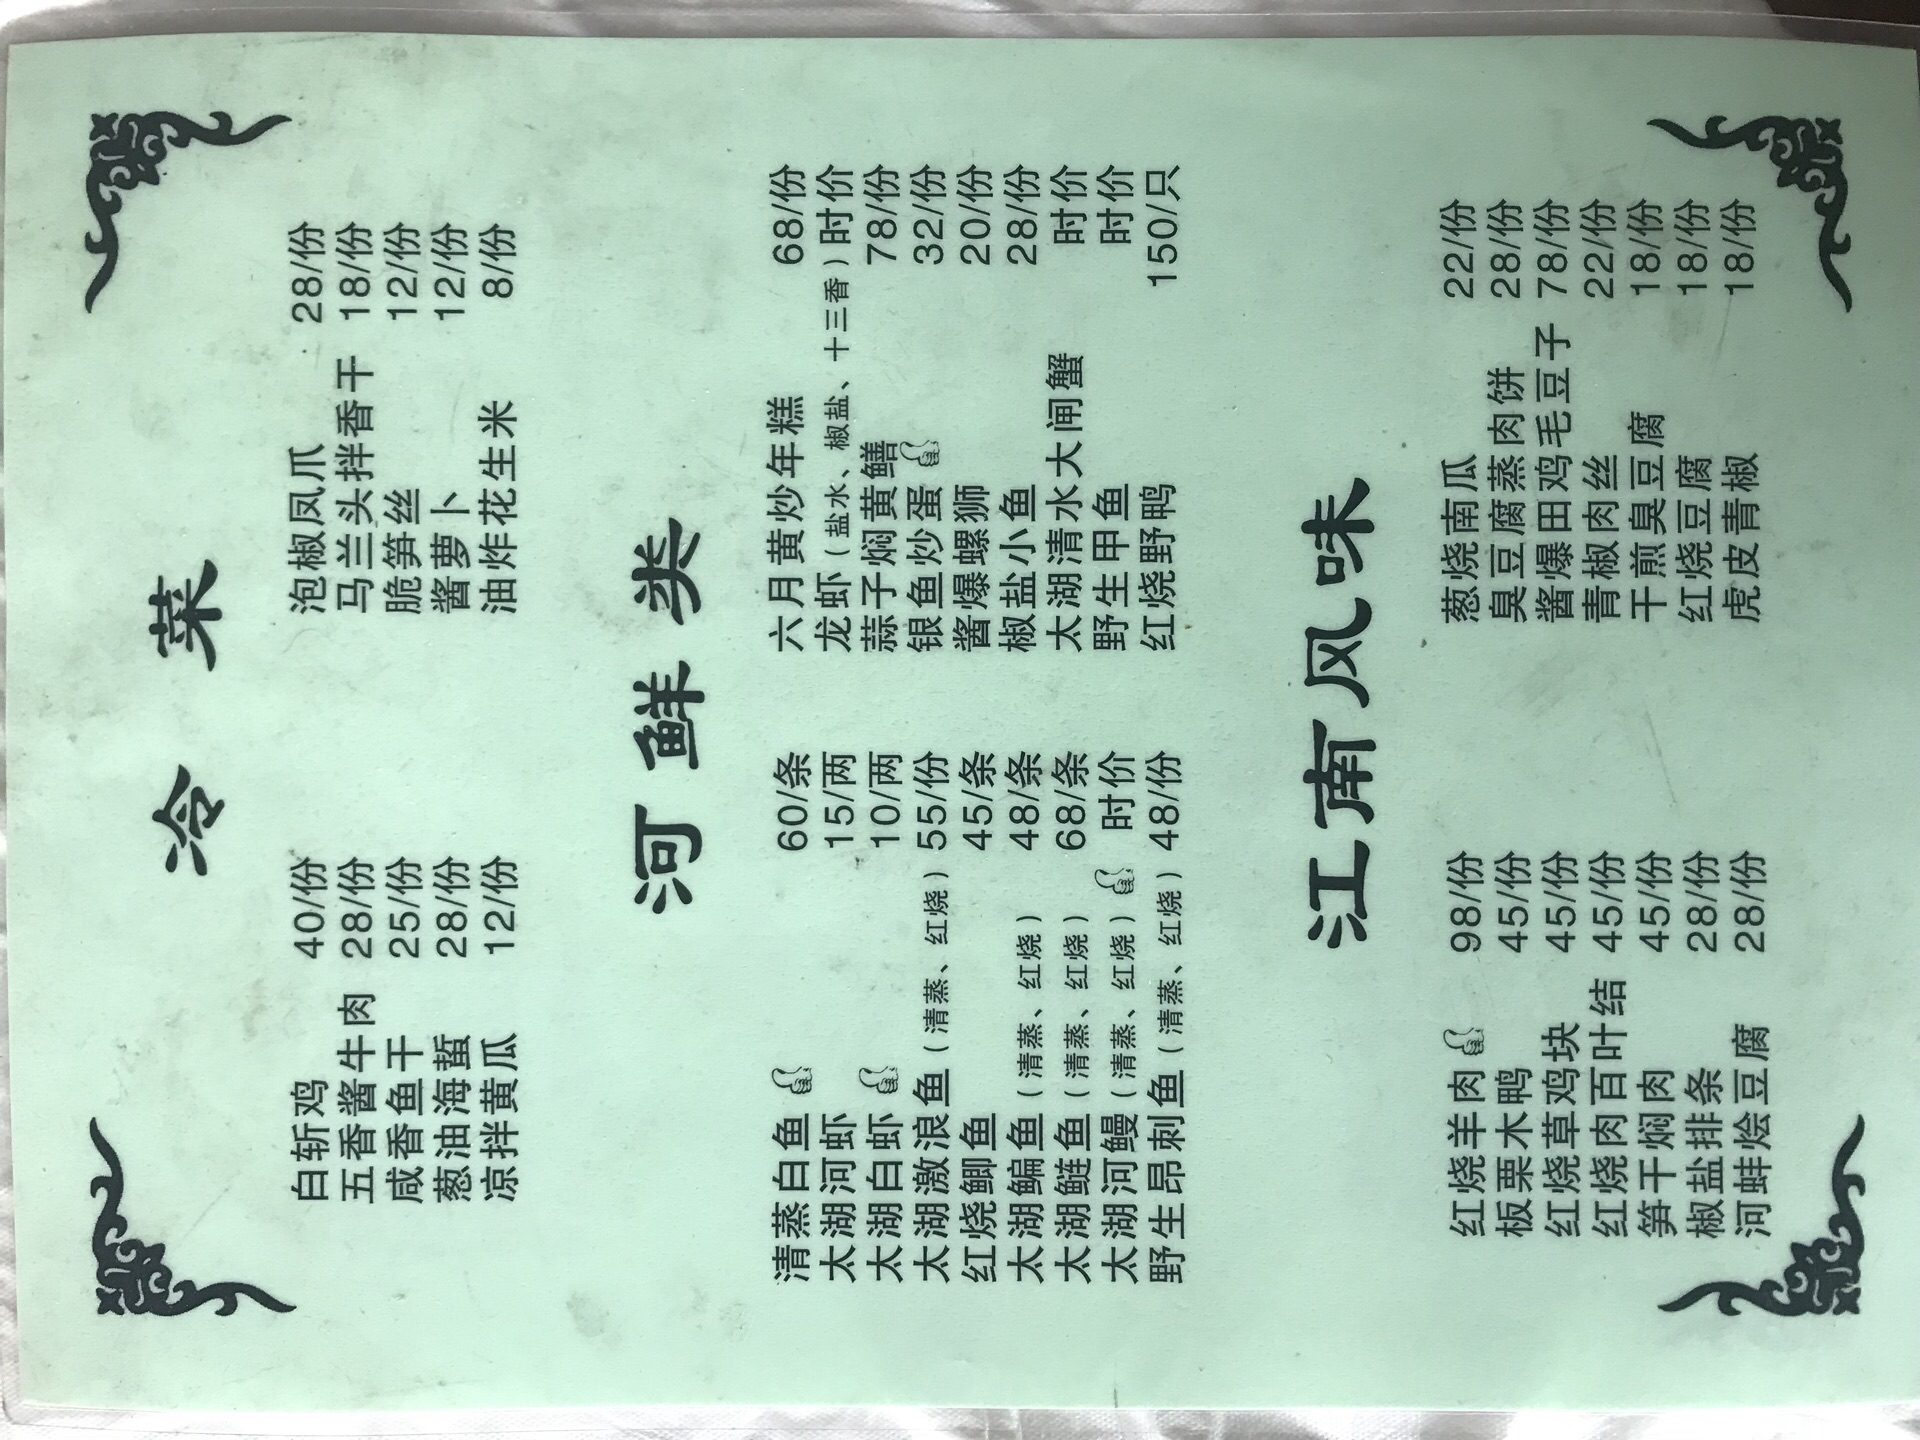 冷 菜
白斩鸡 40/份 泡椒凤爪 28/份
五香酱牛肉 28/份 马兰头拌香干 18/份
咸香鱼干 25/份 脆笋丝 12/份
葱油海蜇 28/份 酱萝卜 12/份
凉拌黄瓜 12/份 油炸花生米 8/份
河鲜类
清蒸白鱼 60/条 六月黄炒年糕 68/份
太湖河虾 15/两 龙虾(盐水、椒盐、十三香)时价
太湖白虾 10/两 蒜子焖黄鳝 78/份
太湖激浪鱼(清蒸、红烧) 55/份 银鱼炒蛋 32/份
红烧鲫鱼 45/条 酱爆螺狮 20/份
太湖鳊鱼(清蒸、红烧) 48/条 椒盐小鱼 28/份
太湖鲢鱼(清蒸、红烧) 68/条 太湖清水大闸蟹 时价
太湖河鳗(清蒸、红烧) 时价 野生甲鱼 时价
野生昂刺鱼(清蒸、红烧) 48/份 红烧野鸭 150/只
江南风味
红烧羊肉 98/份 葱烧南瓜 22/份
板栗木鸭 45/份 臭豆腐蒸肉饼 28/份
红烧草鸡块 45/份 酱爆田鸡毛豆子 78/份
红烧肉百叶结 45/份 青椒肉丝 22/份
笋干焖肉 45/份 干煎臭豆腐 18/份
椒盐排条 28/份 红烧豆腐 18/份
河蚌烩豆腐 28/份 虎皮青椒 18/份